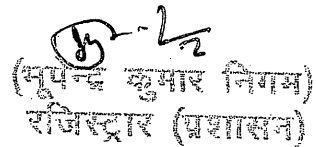 (भूपेन्द्र कुमार निगम)
रजिस्ट्रार (प्रशासन)